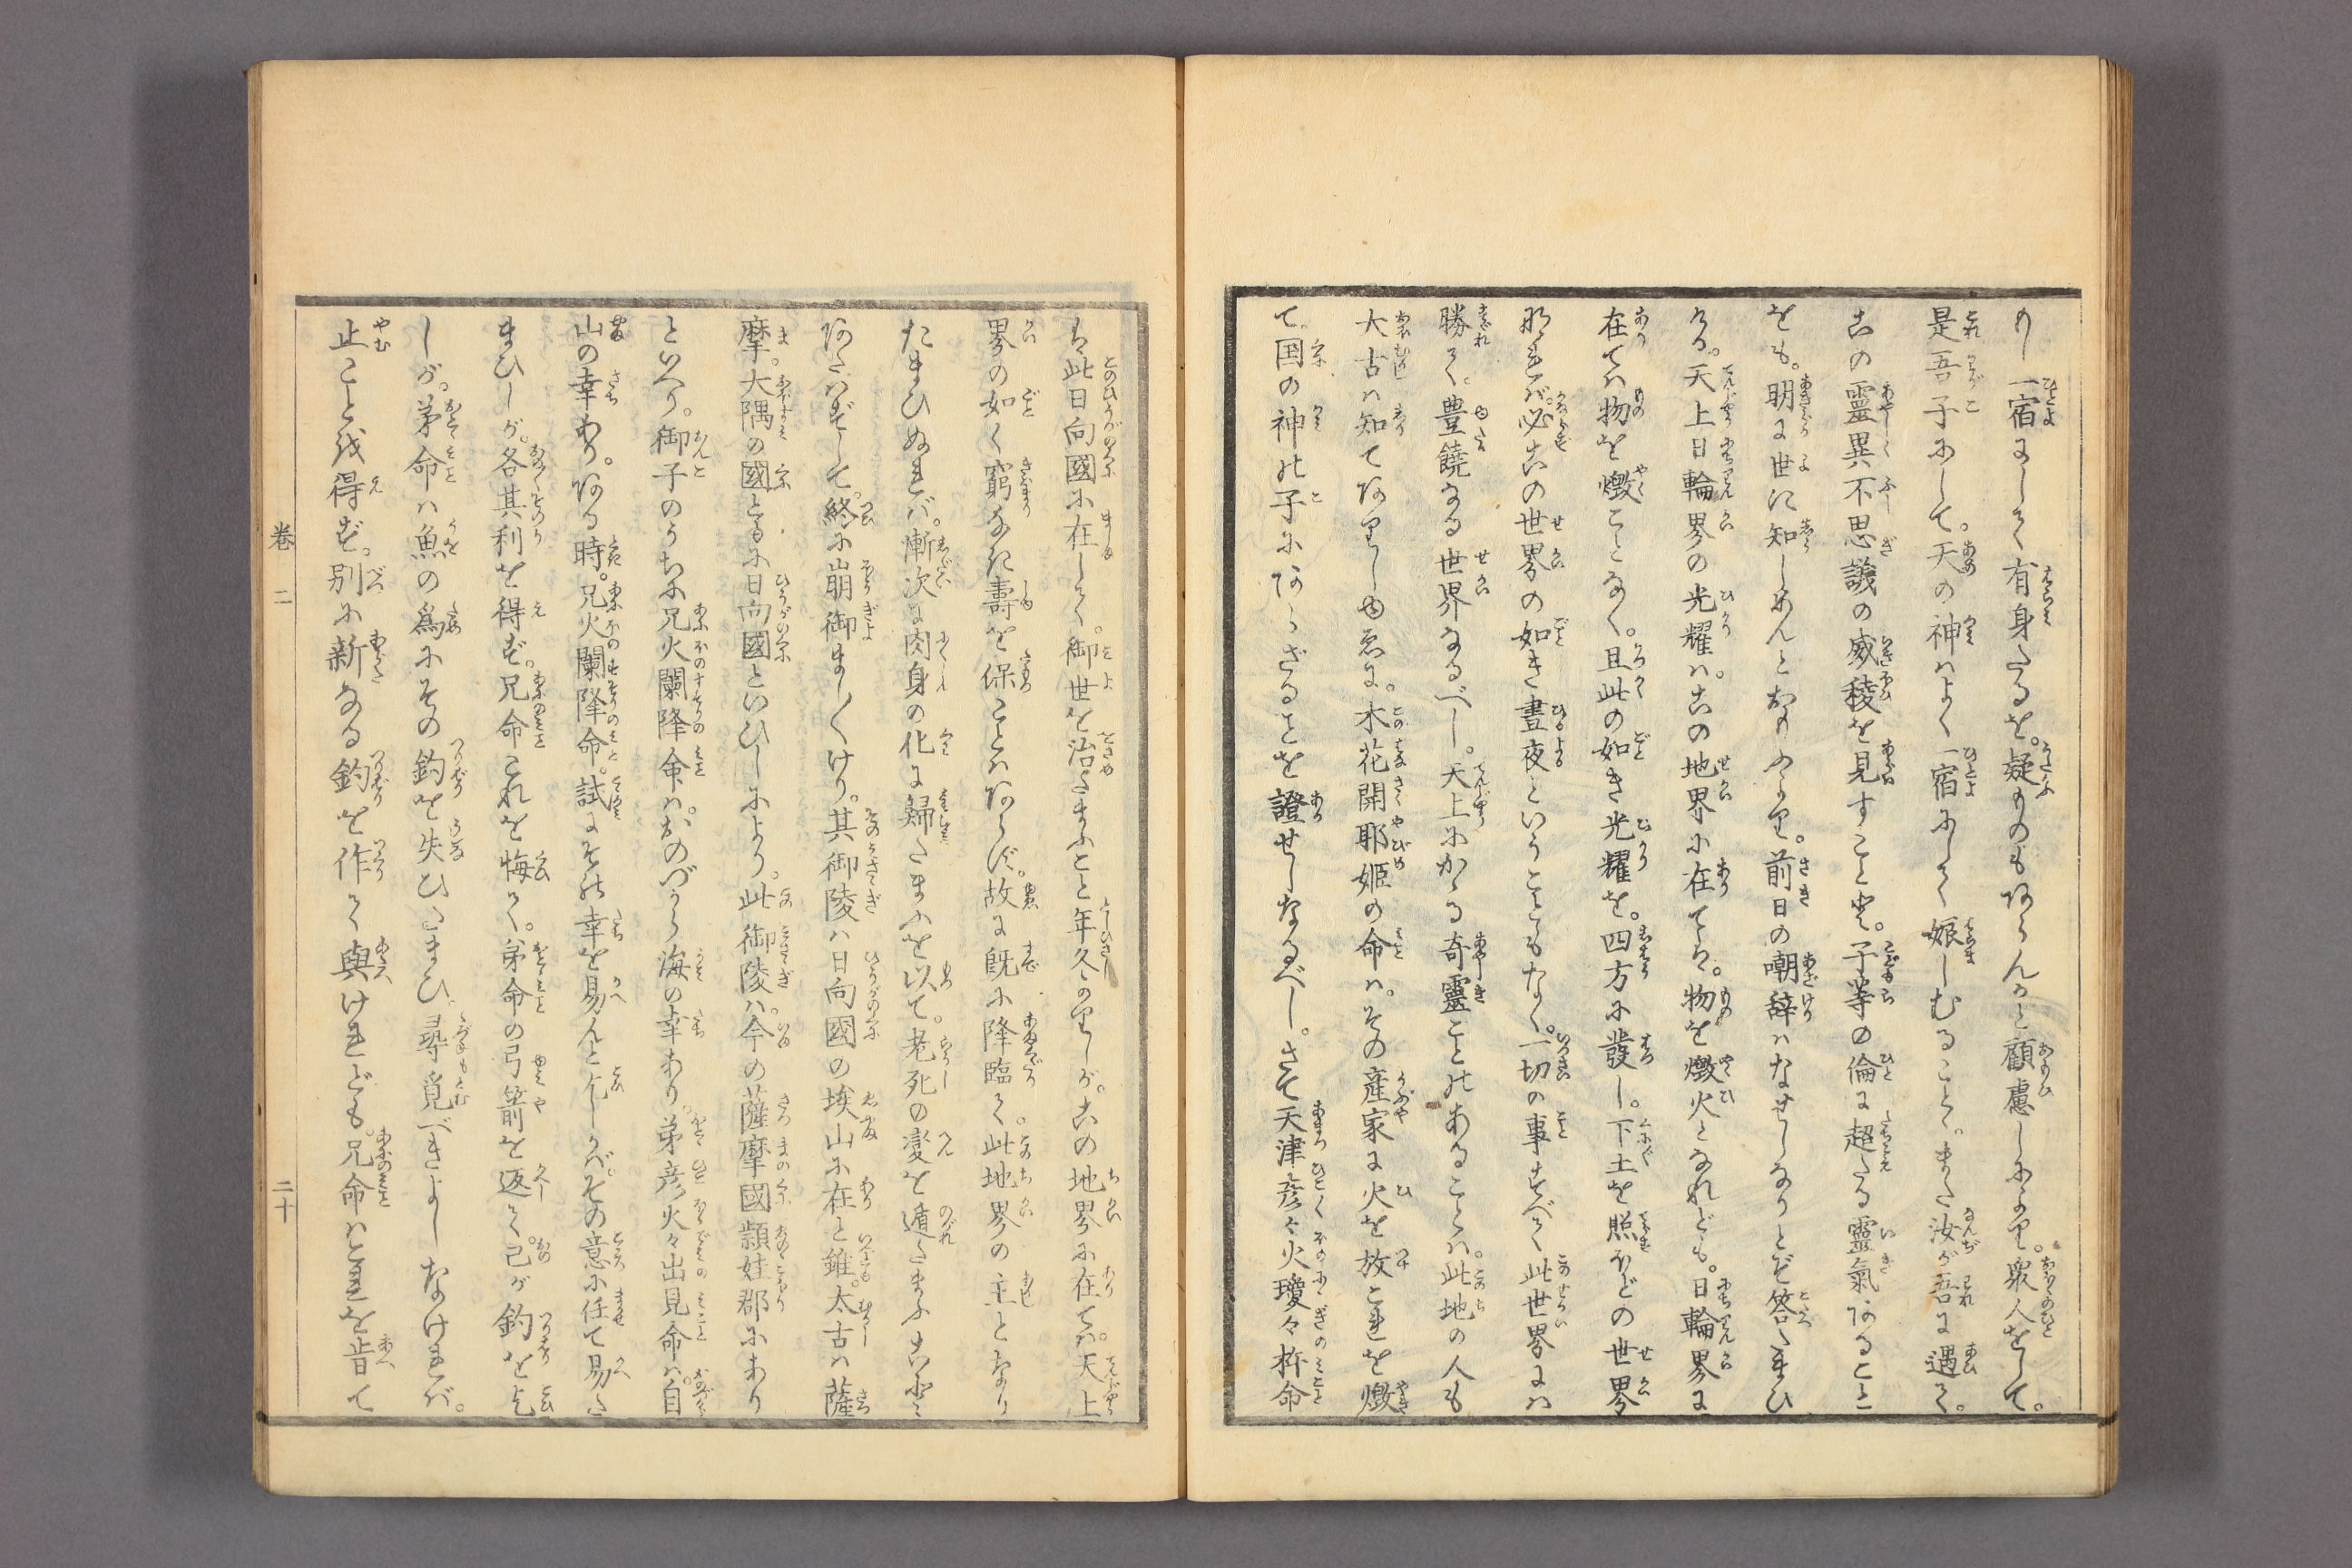 めし一宿にして有身たるを。疑ものもあらんかと顧慮しによれり。衆人をして。
是吾子にして。天の神はよく一宿にして娠しむること。また汝が吾に遇て。
古の靈異不思議の威稜を見すこと也。子等の倫に超たる靈氣あること
をも。明に世に知しめんとおもへるより。前日の嘲辞はなせしなりとぞ答たまひ
ける。天上日輪界の光耀は。古の地界に在ては。物を燬火となれども。日輪界に
在ては物を燬ことなく。且此の如き光耀を。四方に發し。下土を照すほどの世界
なれば。必古の世界の如き晝夜といふこともなく。一切の事すべて此世界には
勝て。豊饒なる世界なるべし。天上にかゝる奇靈ことのあることは。此地の人も
大古は知てありしゆゑに。木花開耶姫の命は。その産家に火を放これを燬
て。国の神の子にあらざるを證せしなるべし。さて天津彦々火瓊々杵命
は此日向國に在して。御世を治たまふこと年久かりしが。古の地界に在ては。天上
界の如く窮なき壽を保ことはあらず。故に既に降臨て。此地界の主となり
たまひぬれば。漸次に肉身の化に歸たまふを以て。老死の變を遁たまふこと
あたはずして。終に崩御まし〳〵けり。其御陵は日向國の埃山に在と雖。太古は薩
摩。大隅の國ともに日向國といひしにより。此御陵は。今の薩摩國頴娃郡にあり
といへり。御子のうちに兄火闌降命は。おのづから海の幸あり。弟彦火々出見命は。自
山の幸あり。ある時。兄火闌降命。試にその幸を易んと乞しかば。その意に任て易た
まひしが。各其利を得ず。兄命これを悔て。弟命の弓箭を返て。己が釣を乞
しが。弟命は魚の爲にその釣を失ひたまひ。尋覓べきよしなければ。
止ことを得ず。別に新なる釣を作て與けれども。兄命はこれを肯て
巻二
二十